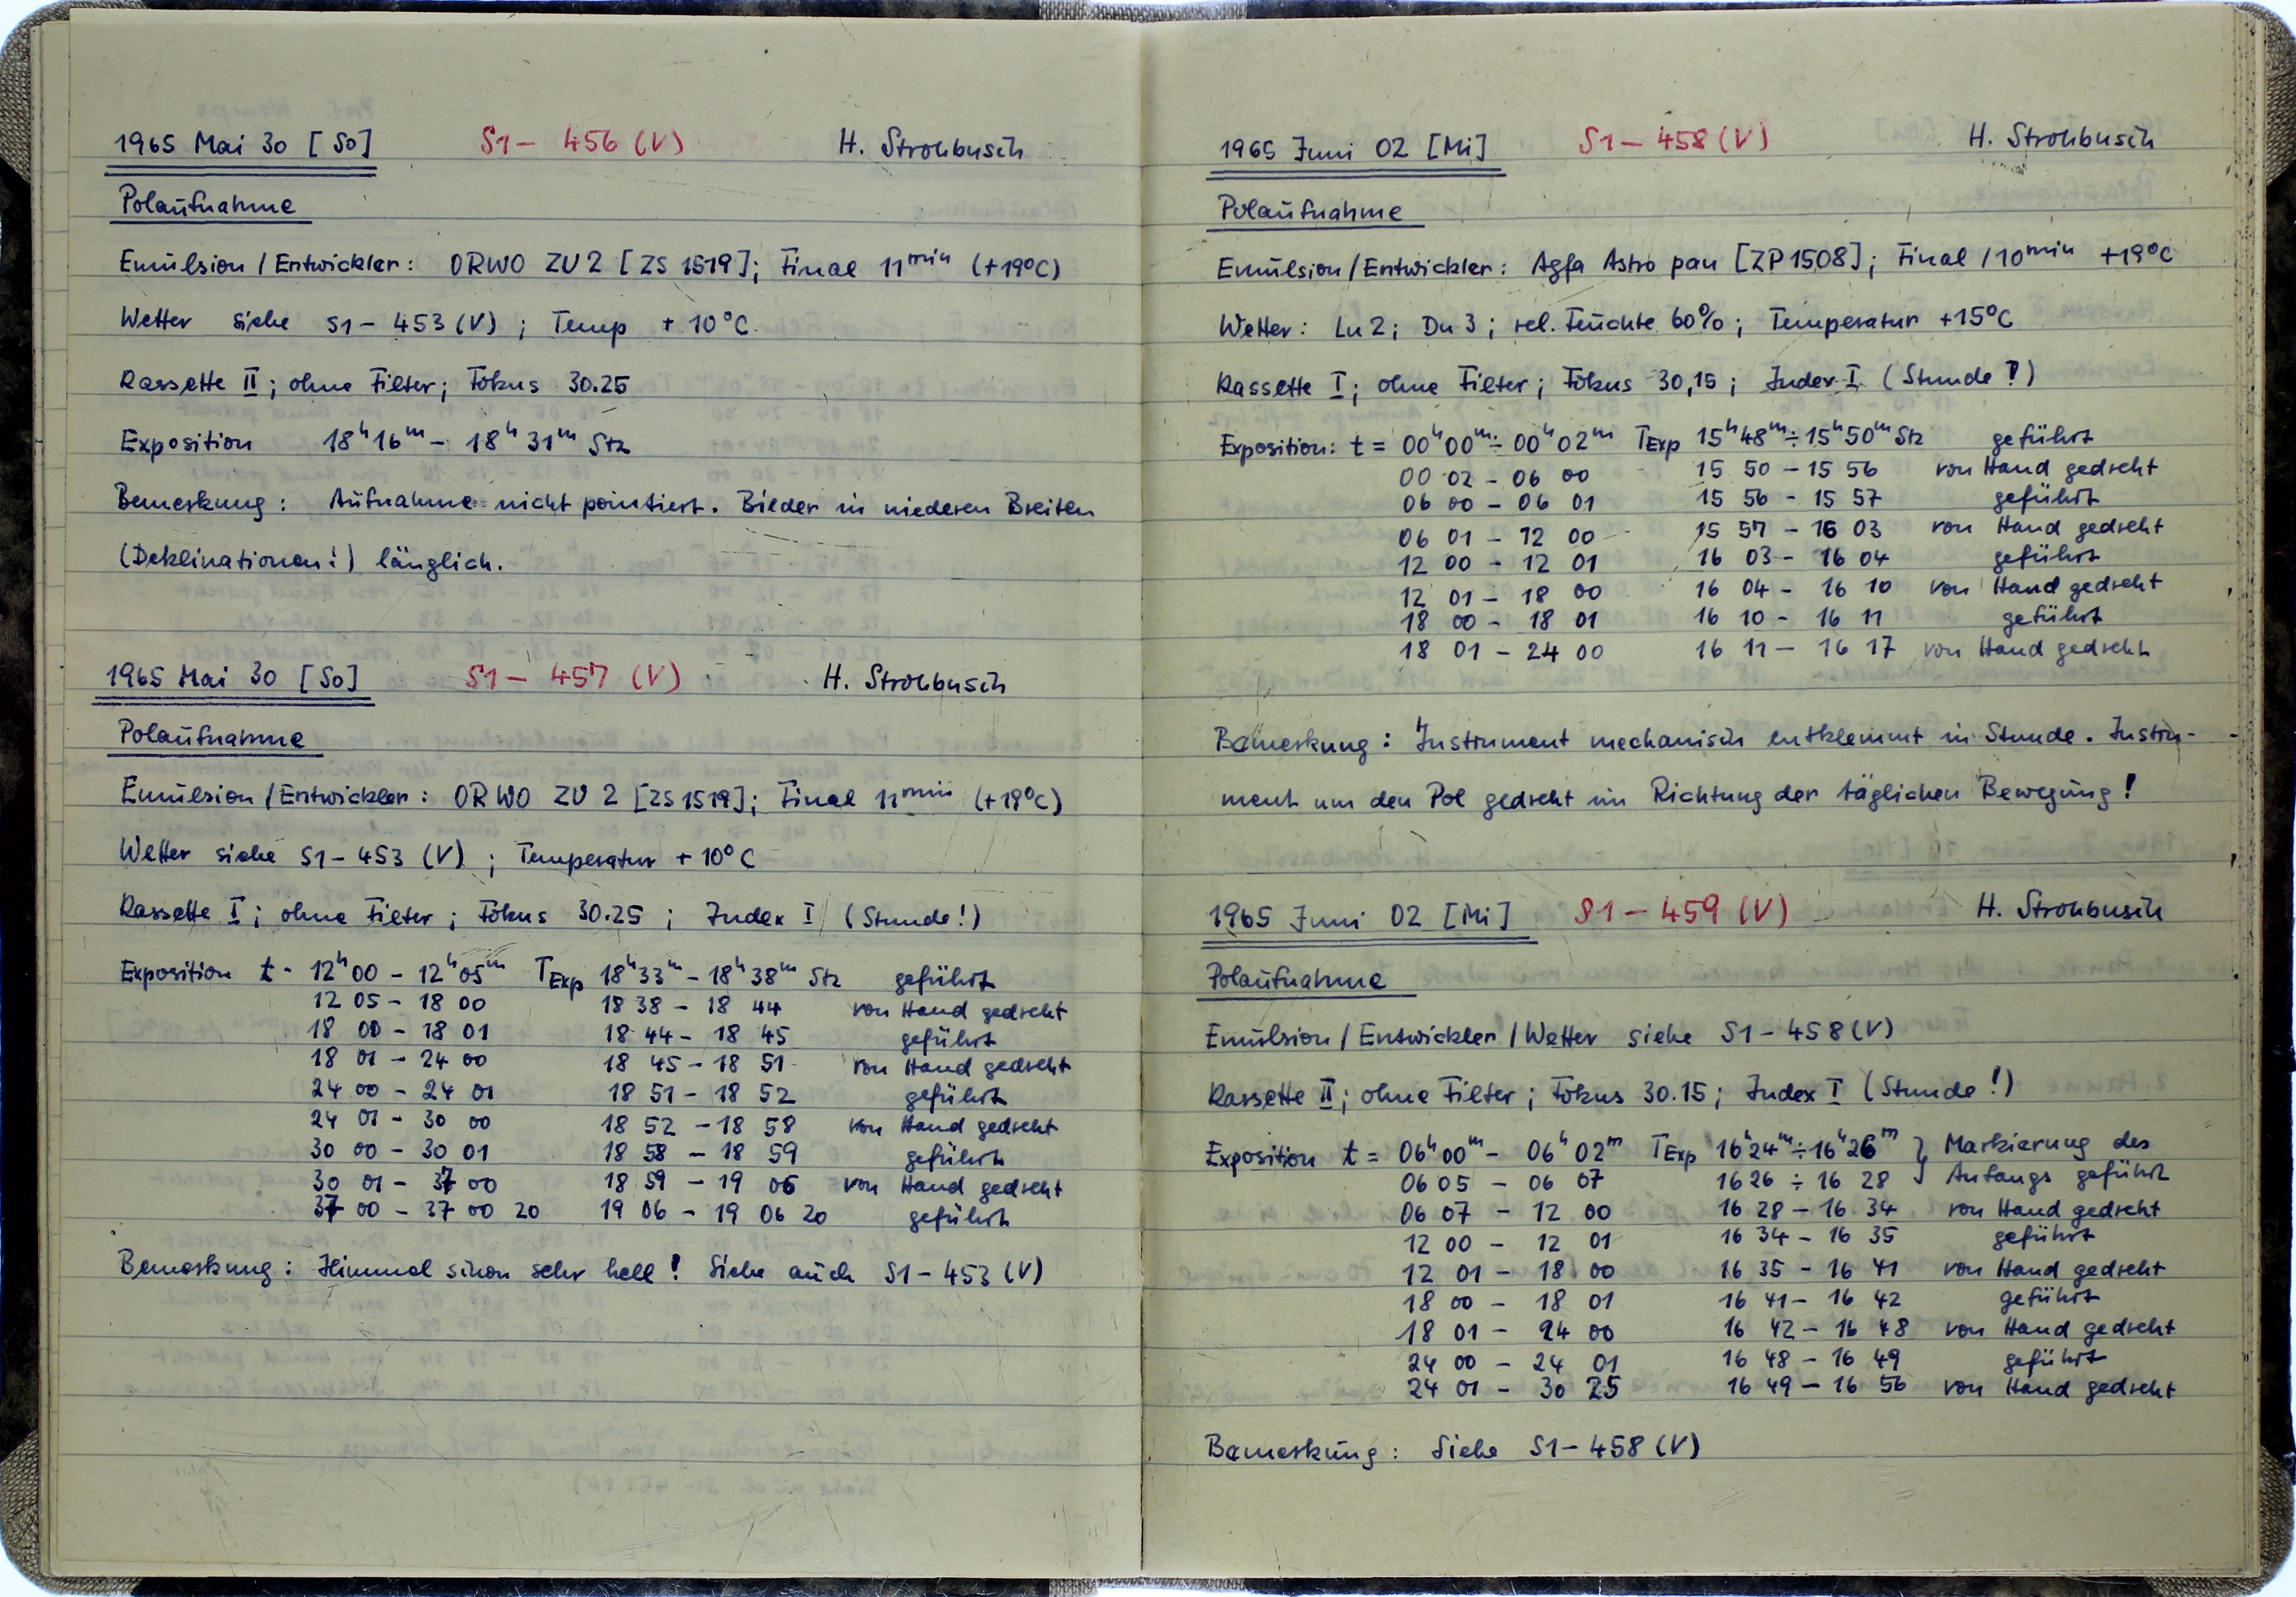 1965 Mai 30 [So] S1 – 456 (V) H. Strohbusch
Polaufnahme
Emulsion / Entwickler: ORWO ZU 2 [ZS 1519]; Final 11min (+19°C)
Wetter siehe S1 – 453 (V) ; Temp + 10°C
Kassette II; ohne Filter; Fokus 30.25
Exposition 18h16m – 18h31m Stz
Bemerkung: Aufnahme nicht pointiert. Bilder in niederen Breiten
(Deklinationen!) länglich.
1965 Mai 30 [So] S1 – 457 (V) H. Strohbusch
Polaufnahme
Emulsion / Entwickler: ORWO ZU 2 [ZS 1519]; Final 11min (+19°C)
Wetter siehe S1 – 453 (V) ; Temperatur + 10°C
Kassette I; ohne Filter; Fokus 30.25 ; Index I (Stunde!)
Exposition t = 12h00 – 12h05m TExp 18h33m – 18h38m Stz geführt
12 05 – 18 00 18 38 – 18 44 von Hand gedreht
18 00 – 18 01 18 44 – 18 45 geführt
18 01 – 24 00 18 45 – 18 51 von Hand gedreht
24 00 – 24 01 18 51 – 18 52 geführt
24 01 – 30 00 18 52 – 18 58 von Hand gedreht
30 00 – 30 01 18 58 – 18 59 geführt
30 01 – 37 00 18 59 – 19 06 von Hand gedreht
37 00 – 37 00 20 19 06 – 19 06 20 geführt
Bemerkung: Himmel schon sehr hell! Siehe auch S1 – 453 (V)
1965 Juni 02 [Mi] S1 – 458 (V) H. Strohbusch
Polaufnahme
Emulsion / Entwickler: Agfa Astro pan [ZP 1508]; Final / 10min +19°C
Wetter: Lu 2; Du 3; rel. Feuchte 60%; Temperatur +15°C
Kassette I; ohne Filter; Fokus 30,15; Index I (Stunde!)
Exposition: t = 00h00m ÷ 00h02m TExp 15h48m ÷ 15h50m Stz geführt
00 02 – 06 00 15 50 – 15 56 von Hand gedreht
06 00 – 06 01 15 56 – 15 57 geführt
06 01 – 12 00 15 57 – 16 03 von Hand gedreht
12 00 – 12 01 16 03 – 16 04 geführt
12 01 – 18 00 16 04 – 16 10 von Hand gedreht
18 00 – 18 01 16 10 – 16 11 geführt
18 01 – 24 00 16 11 – 16 17 von Hand gedreht
Bemerkung: Instrument mechanisch entklemmt in Stunde. Instru-
ment um den Pol gedreht im Richtung der täglichen Bewegung!
1965 Juni 02 [Mi] S1 – 459 (V) H. Strohbusch
Polaufnahme
Emulsion / Entwickler / Wetter siehe S1 – 458 (V)
Kassette II; ohne Filter; Fokus 30.15; Index I (Stunde!)
Exposition t = 06h00m – 06h02m TExp 16h24m ÷ 16h26m } Markierung des
06 05 – 06 07 16 26 ÷ 16 28 Anfangs geführt
06 07 – 12 00 16 28 – 16 34 von Hand gedreht
12 00 – 12 01 16 34 – 16 35 geführt
12 01 – 18 00 16 35 – 16 41 von Hand gedreht
18 00 – 18 01 16 41 – 16 42 geführt
18 01 – 24 00 16 42 – 16 48 von Hand gedreht
24 00 – 24 01 16 48 – 16 49 geführt
24 01 – 30 25 16 49 – 16 56 von Hand gedreht
Bemerkung: Siehe S1 – 458 (V)